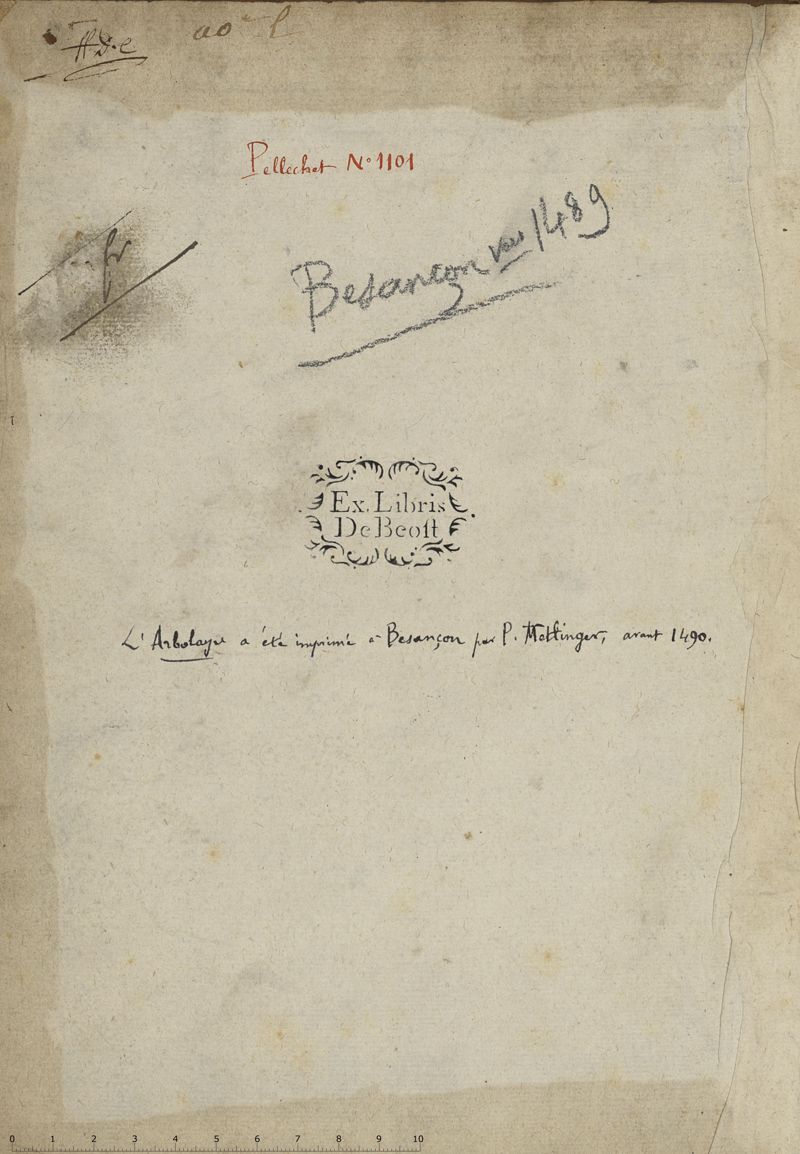 Pellechet N° 1101
Besançon vers 1489
Ex Libris
De Beost
L'Arbolayre a été imprimé à Besançon par P. Mettinger, avant 1490.
0 1 2 3 4 5 6 7 8 9 10